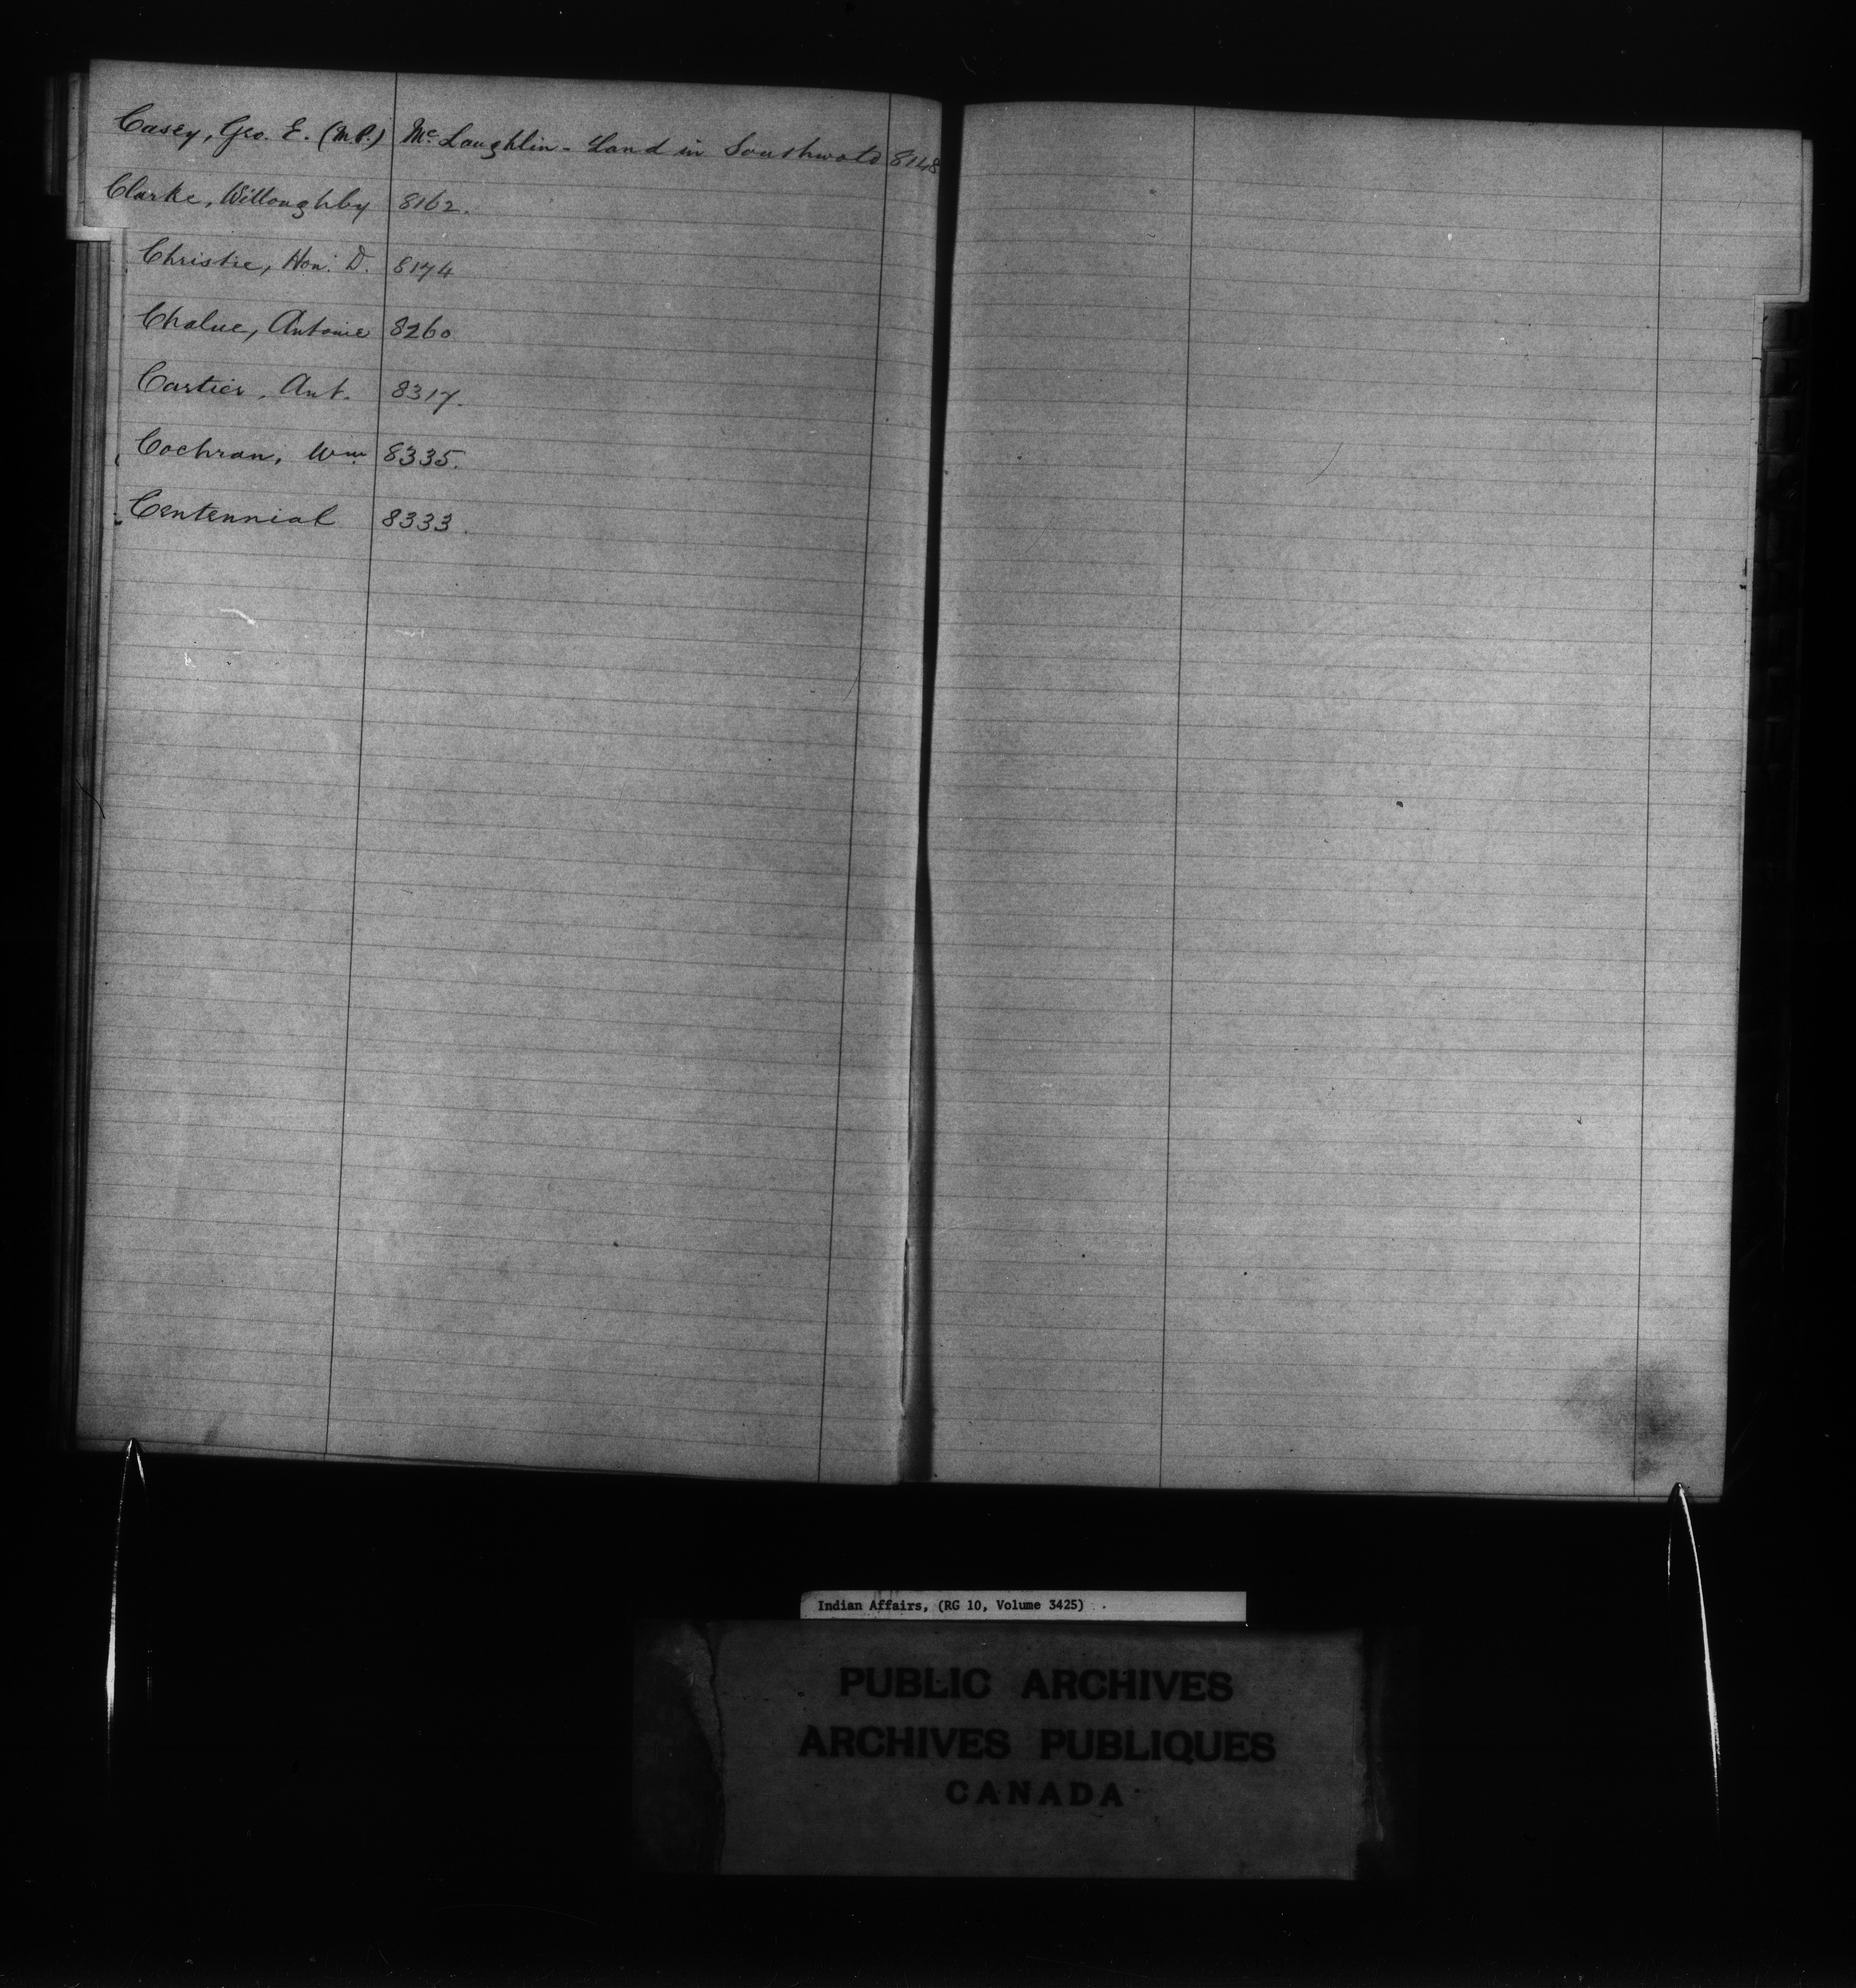 Casey, Geo. E. (M.P.) McLaughlin - Land in Southwold 8148
Clarke, Willoughby 8162.
Christie, Hon. D. 8174
Chalue, Antoine 8260
Cartier, Ant. 8317.
Cochran, Wm 8335.
Centennial 8333.
Indian Affairs, (RG 10, Volume 3425)
PUBLIC ARCHIVES
ARCHIVES PUBLIQUES
CANADA